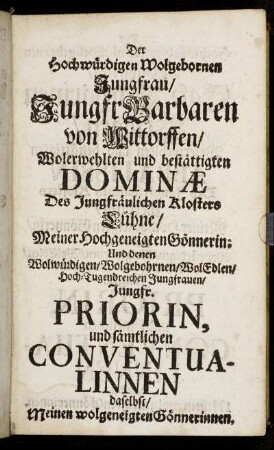 Der
Hochwürdigen Wolgebornen
Jungfrau/
Jungfr Barbaren
von Wittorffen/
Wolerwehlten und bestättigten
DOMINÆ
Des Jungfräulichen Klosters
Lühne/
Meiner Hochgeneigten Gönnerin;
Und denen
Wolwürdigen/Wolgebohrnen/WolEdlen/
Hoch-Tugendreichen Jungfrauen/
Jungfr.
PRIORIN,
und sämtlichen
CONVENTUA-
LINNEN
daselbst/
Meinen wolgeneigten Gönnerinnen.